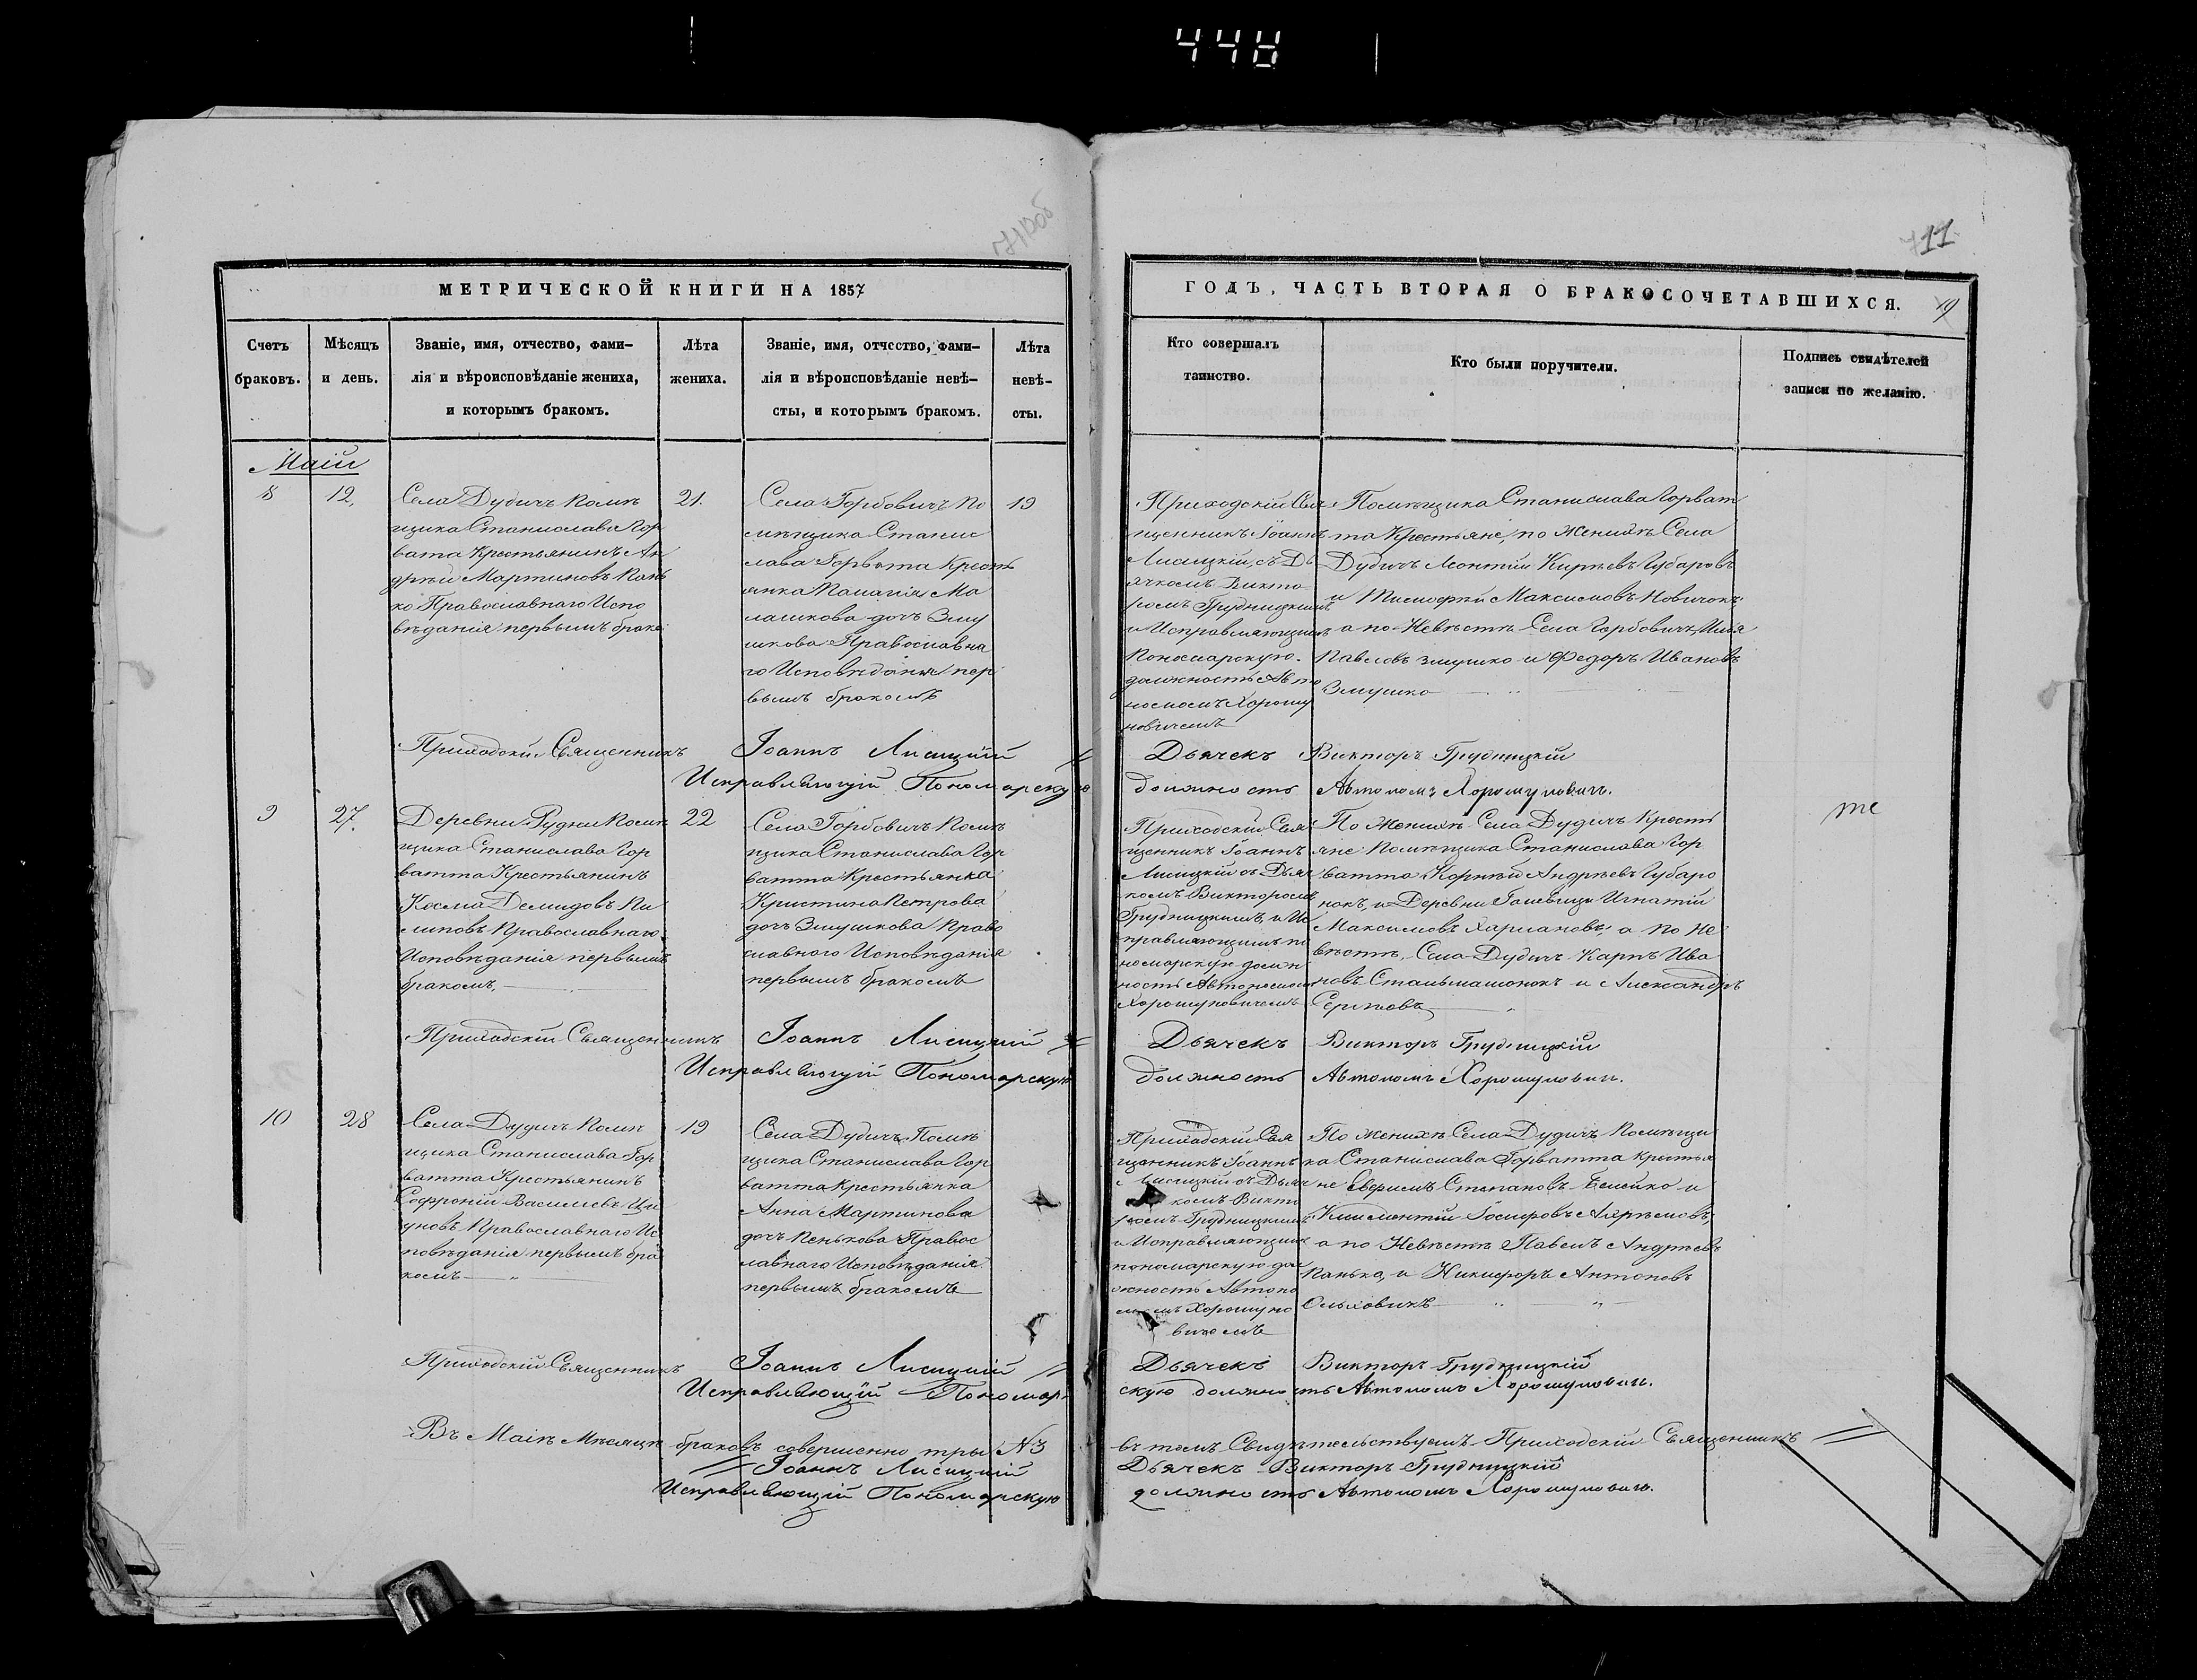 448
711об
711
МЕТРИЧЕСКОЙ КНИГИ НА 1857
ГОДЪ, ЧАСТЬ ВТОРАЯ О БРАКОСОЧЕТАВШИХСЯ.
Счетъ
браковъ.
Мѣсяцъ
и день.
Званіе, имя, отчество, фами-
лія и вѣроисповѣданіе жениха,
и которымъ бракомъ.
Лѣта
жениха.
Званіе, имя, отчество, фами-
лія и вѣроисповѣданіе невѣ-
сты, и которымъ бракомъ.
Лѣта
невѣ-
сты.
Кто совершалъ
таинство.
Кто были поручители.
Подпись свидѣтелей
записи по желанію.
Маій
8
12.
Села Дудичъ Помѣ
щика Станислава Гор
вата Крестьянинъ Ан
дрей Мартиновъ Пань
ко Православнаго Испо
вѣданія первымъ брако
21.
Села Горбовичъ По
мѣщика Станис
лава Горвата Кресть
янка Меланія Ма
лашкова дочъ Змуш
шкова Православна
го Исповѣданія пер
вымъ бракомъ
19
Приходскій Свя
щенникъ Іоаннъ
Лисицкій, съ Дь
ячкомъ Викто
ромъ Грудницкимъ
и Исправляющимъ
Пономарскую
должность Авто
номомъ Хорошу
новичемъ
Помѣщика Станислава Горват
та Крестьяне, по Женихѣ Села
Дудичъ Леонтій Кирѣевъ Губаровъ
и Тимофей Максимовъ Новичокъ
а по Невѣстѣ Села Горбовичъ Илья
Павловъ Змушко и Федоръ Ивановъ
Змушко
Приходскій Священникъ Іоаннъ Лисицкій //
Исправляющій Пономарскую
Дьячекъ Викторъ Грудницкій
должность Автономъ Хорошуновичъ.
9
27.
Деревни Рудни Помѣ
щика Станислава Гор
ватта Крестьянинъ
Косма Демидовъ Фи
липовъ Православнаго
Исповѣданія первымъ
бракомъ.
22
Села Горбовичъ Помѣ
щика Станислава Гор
ватта Крестьянка
Кристина Петрова
дочъ Змушкова Право
славнаго Исповѣданія
первымъ бракомъ
Приходскій Свя
щенникъ Іоаннъ
Лисицкій съ Дьяч
комъ Викторомъ
Грудницкимъ, и Ис
правляющимъ по
номарскую долж
ность Автономомъ
Хорошуновичемъ
По Женихѣ Села Дудичъ Кресть
яне Помѣщика Станислава Гор
ватта Корнѣй Андрѣевъ Губаро
нокъ, и Деревни Игнатій
Максимовъ Хармановъ, а по Не
вѣстѣ, Села Дудичъ Карпъ Ива
новъ и Александръ
Приходскій Священникъ Іоаннъ Лисицкій //
Исправляющій Пономарскую
Дьячекъ Викторъ Грудницкій
должность Автономъ Хорошуновичъ.
10
28
Села Дудичъ Помѣ
щика Станислава Гор
ватта Крестьянинъ
Софроній Василіевъ
Православнаго Ис
повѣданія первымъ бра
комъ
19
Села Дудичъ Помѣ
щика Станислава Гор
ватта Крестьянка
Анна Мартинова
дочъ Пенькова Правос
лавнаго Исповѣданія
первымъ бракомъ
Приходскій Свя
щенникъ Іоаннъ
Лисицкій съ Дьяч
комъ Викто
ромъ Грудницкимъ
и Исправляющимъ
пономарскую дол
жность Автоно
момъ Хорошуно
вичемъ
По Женихѣ Села Дудичъ Помѣщи
ка Станислава Горватта Крестья
не Степановъ и
Климентій Іосифовъ
а по Невѣстѣ Павелъ Андрѣевъ
Панько, и Никифоръ Антоновъ
Ольховикъ
Приходскій Священникъ Іоаннъ Лисицкій //
Исправляющій Пономар
Дьячекъ Викторъ Грудницкій
скую должность Автономъ Хорошуновичъ.
Въ Маіѣ Мѣсяцѣ браковъ совершенно три №3
въ томъ Свидѣтельствуемъ Приходскій Священникъ
// Іоаннъ Лисицкій
Дьячекъ Викторъ Грудницкій
Исправляющій Пономарскую
должность Автономъ Хорошуновичъ.